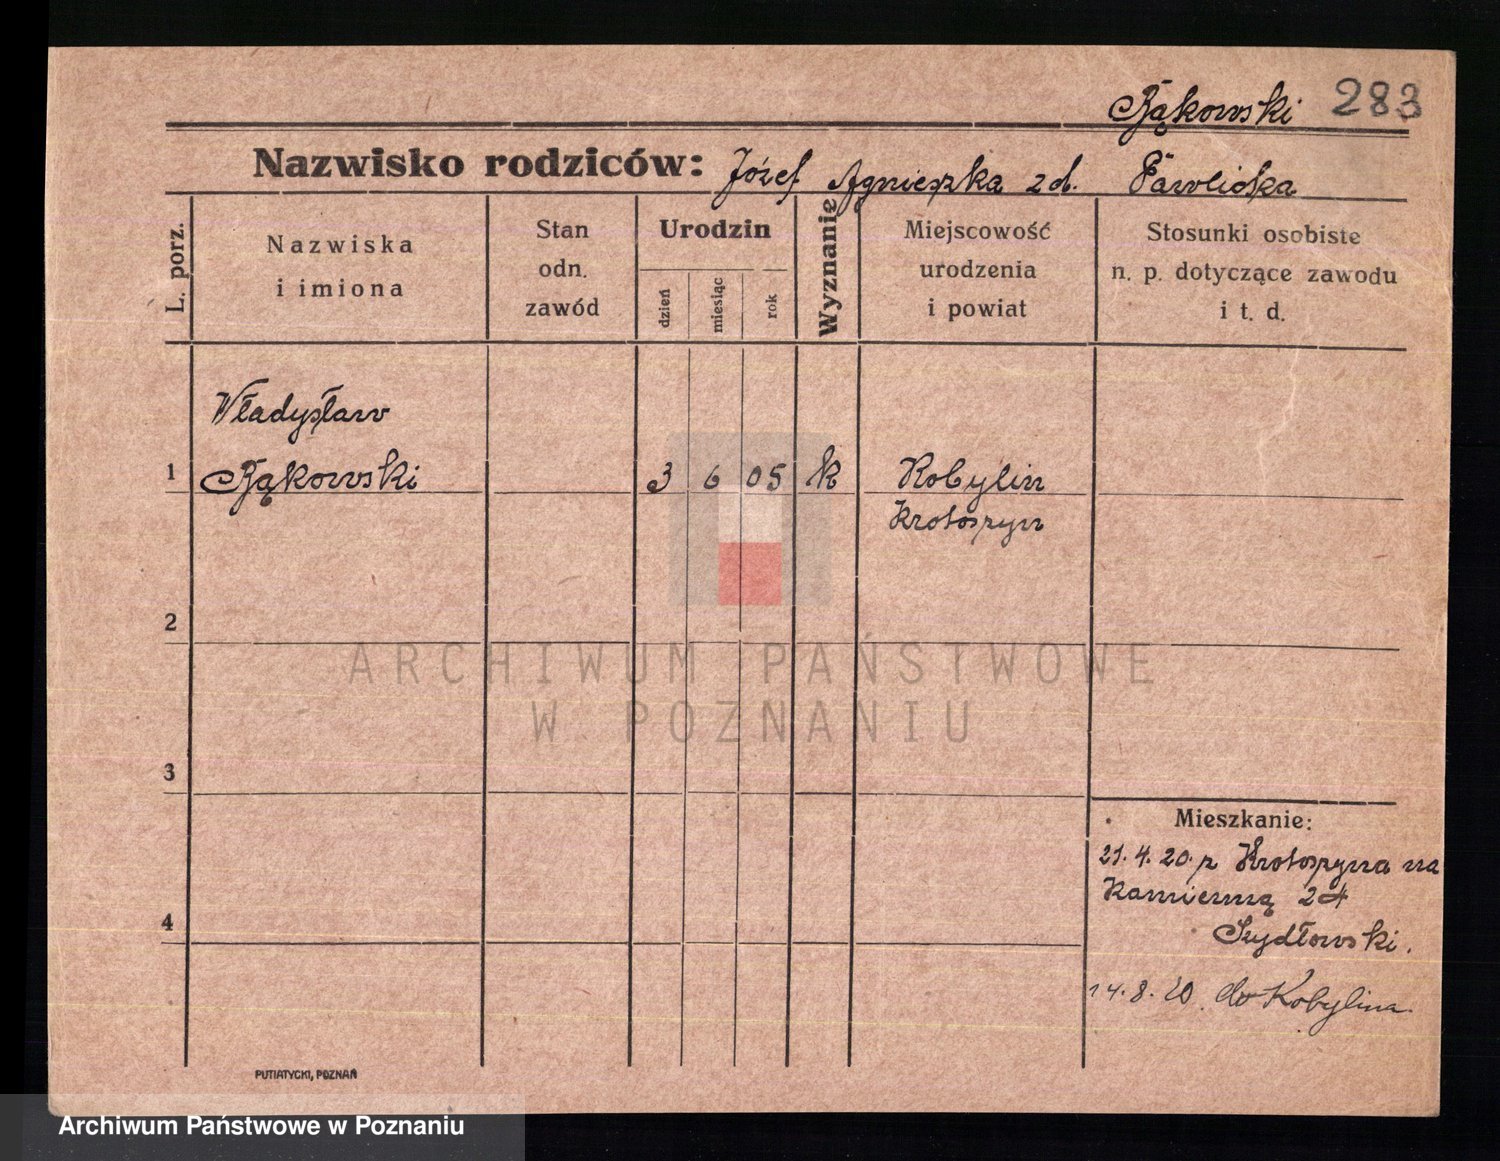 Bąkowski 283
Nazwisko rodziców: Józef Agnieszka zd. Pawlicka
L. porz.
Nazwiska
i imiona
Stan
odn.
zawód
Urodzin
dzień
miesiąc
rok
Wyznanie
Miejscowość
urodzenia
i powiat
Stosunki osobiste
n. p. dotyczące zawodu
i t. d.
Władysław
1 Bąkowski 3 6 05 k Kobylin
Krotoszyn
2
ARCHIWUM PAŃSTWOWE
W POZNANIU
3
Mieszkanie:
21.4.20. z Krotoszyna na
4
Szydłowski.
14.8.20. do Kobylina.
PUTIATYCKI, POZNAŃ
Archiwum Państwowe w Poznaniu